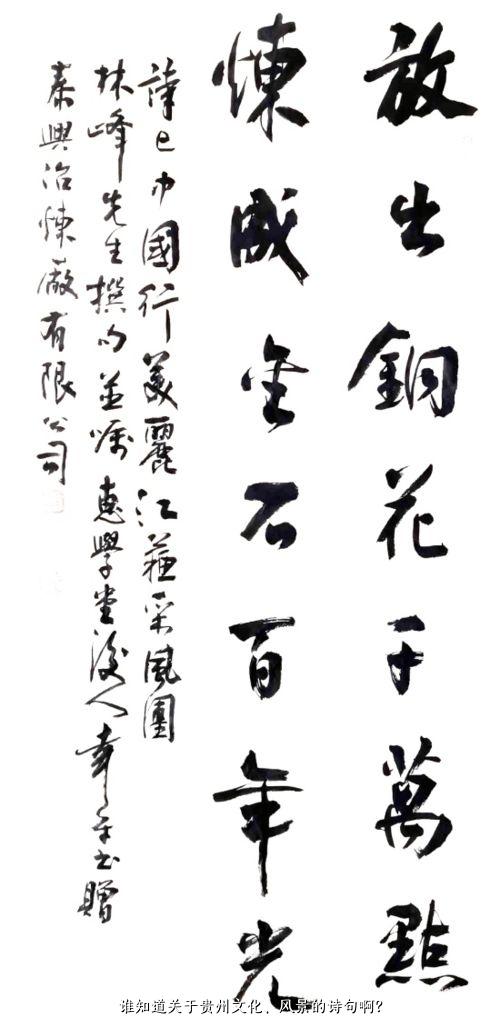 放出銅花千萬點
煉成金石百年光
詩巴中國行美麗江蘇采風團
林峰先生撰句並嘱惠學堂後人幸之書贈
泰興冶煉廠有限公司
谁知道关于贵州文化、风景的诗句啊?